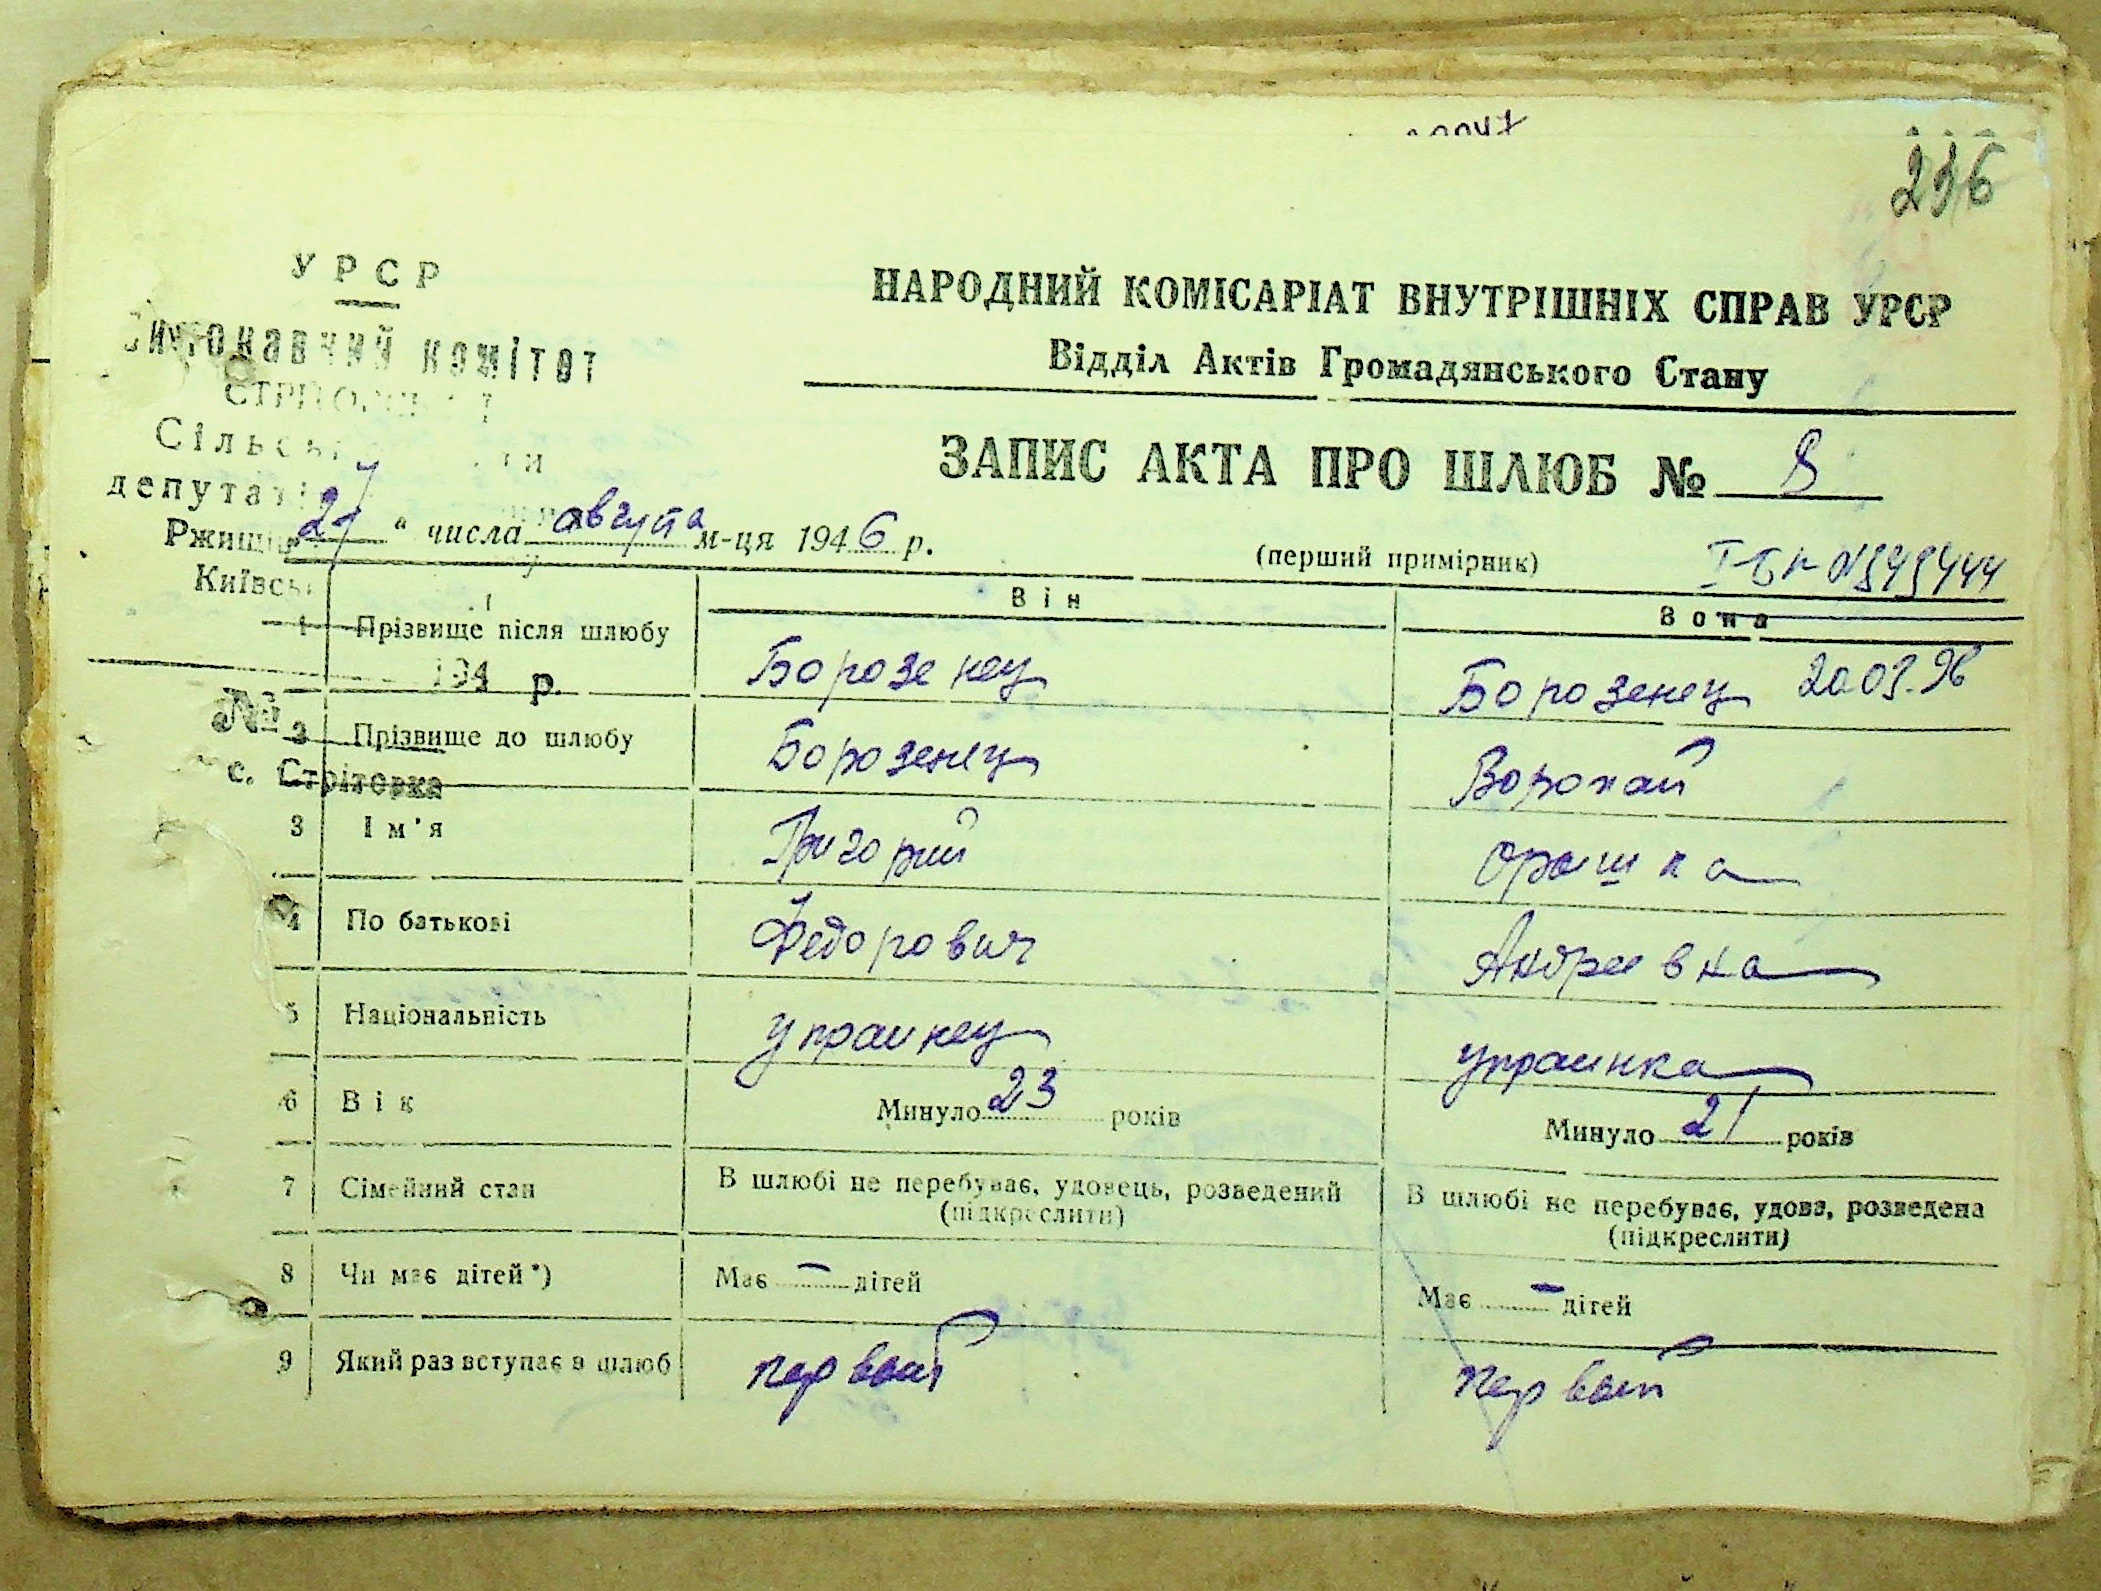 236
УРСР
Виконавчий комітет
Сільсь
депутаті
Ржищів
Київсь
194 р.
№
с. Стрітовка
НАРОДНИЙ КОМІСАРІАТ ВНУТРІШНІХ СПРАВ УРСР
Відділ Актів Громадянського Стану
ЗАПИС АКТА ПРО ШЛЮБ № 8
" числа августа м-ця 1946 р.
(перший примірник)
Він
Вона
1 Прізвище після шлюбу Борозенец Борозенец 20.03.96
2 Прізвище до шлюбу Борозенец Воропай
3 Ім'я Григорий Орышка
4 По батькові Федорович Андреевна
5 Національність украинец украинка
6 Вік Минуло 23 років Минуло 21 років
7 Сімейний стан В шлюбі не перебуває, удовець, розведений (підкреслити) В шлюбі не перебуває, удова, розведена (підкреслити)
8 Чи має дітей*) Має — дітей Має — дітей
9 Який раз вступає в шлюб первый первый